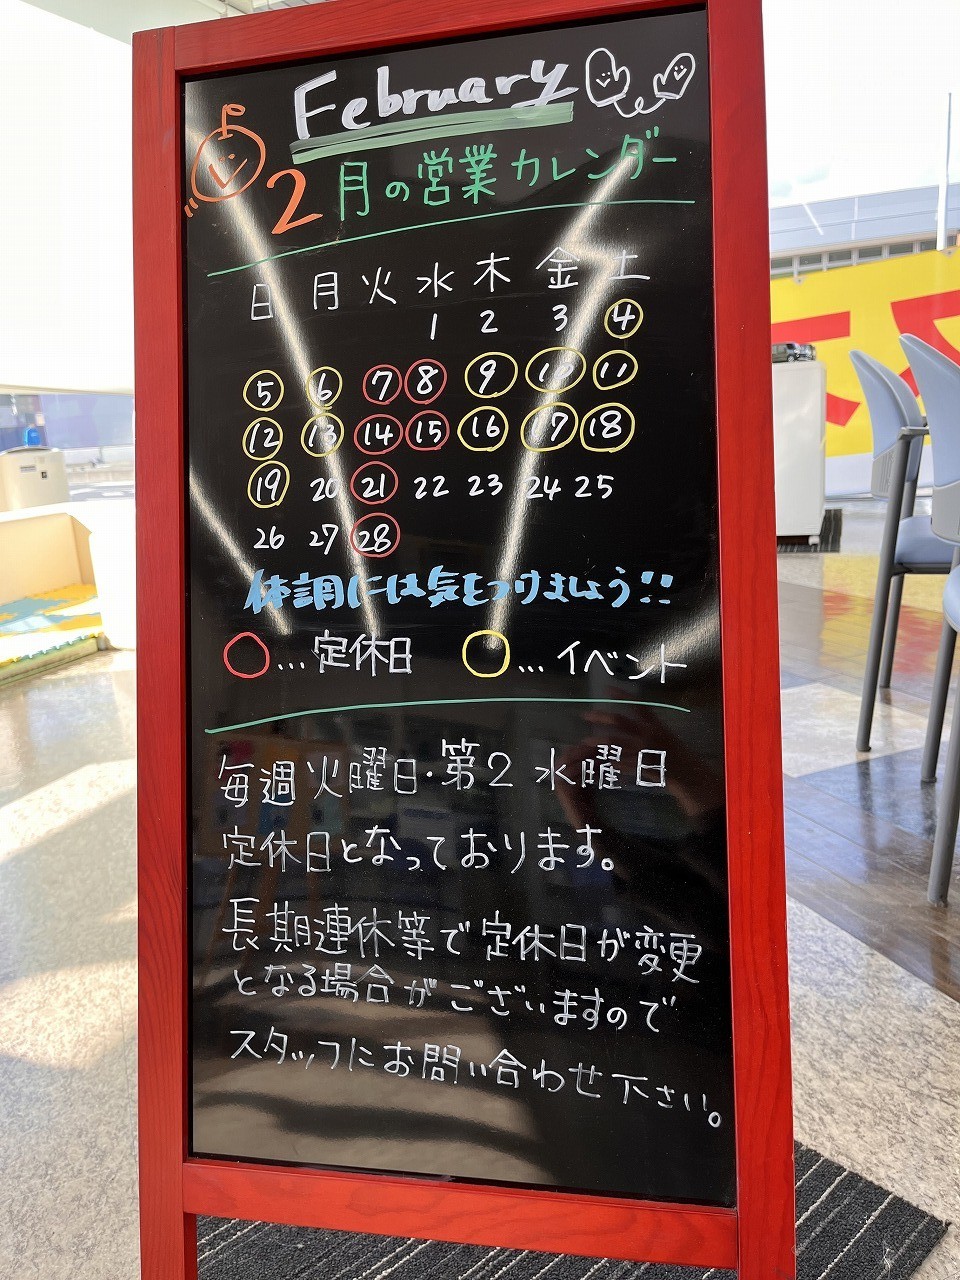 February
2月の営業カレンダー
日 月 火 水 木 金 土
1 2 3 4
5 6 7 8 9 10 11
12 13 14 15 16 17 18
19 20 21 22 23 24 25
26 27 28
体調には気をつけましょう!!
○…定休日 ○…イベント
毎週火曜日・第2水曜日
定休日となっております。
長期連休等で定休日が変更
となる場合がございますので
スタッフにお問い合わせ下さい。